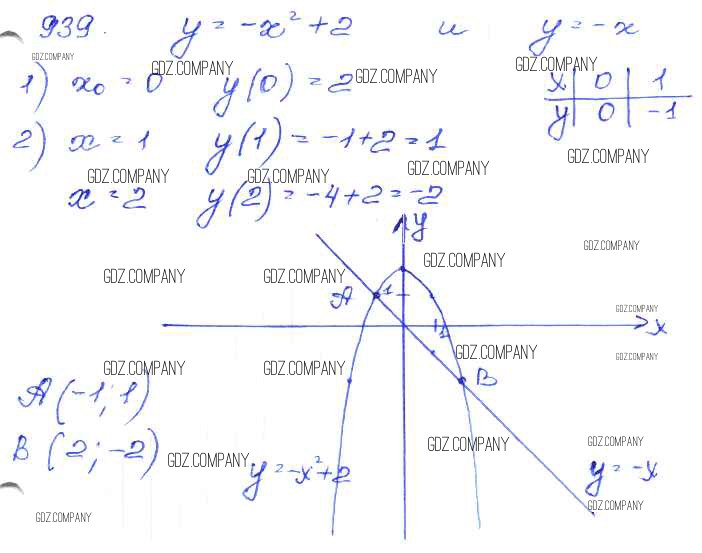 939. y = -x² + 2 и y = -x
GDZ.COMPANY
GDZ.COMPANY GDZ.COMPANY GDZ.COMPANY
1) x₀ = 0 y(0) = 2
x 0 1
y 0 -1
2) x = 1 y(1) = -1+2 = 1
GDZ.COMPANY GDZ.COMPANY GDZ.COMPANY GDZ.COMPANY
x = 2 y(2) = -4+2 = -2
y
GDZ.COMPANY GDZ.COMPANY
GDZ.COMPANY GDZ.COMPANY
A 1
GDZ.COMPANY
1 x
GDZ.COMPANY GDZ.COMPANY
GDZ.COMPANY GDZ.COMPANY
B
A (-1; 1)
B (2; -2)
GDZ.COMPANY GDZ.COMPANY GDZ.COMPANY
y = -x² + 2 y = -x
GDZ.COMPANY
GDZ.COMPANY